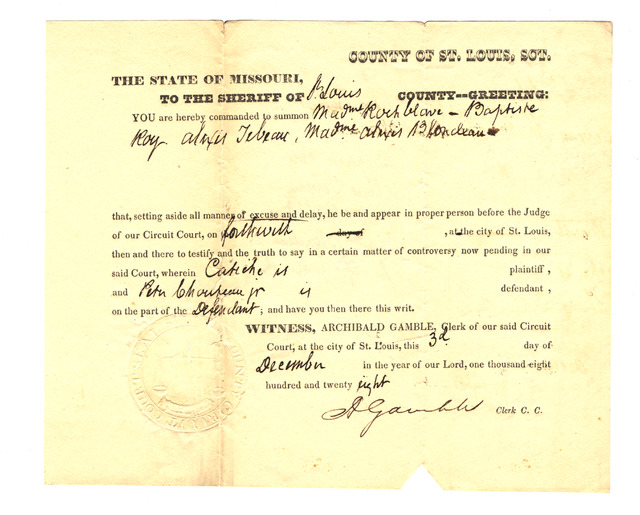 COUNTY OF ST. LOUIS, SCT.
THE STATE OF MISSOURI,
TO THE SHERIFF OF St Louis COUNTY--GREETING:
YOU are hereby commanded to summon Madme Rochblave - Baptiste
Roy alexis Tebeau, Madme alexis Blondeau
that, setting aside all manner of excuse and delay, he be and appear in proper person before the Judge
of our Circuit Court, on forthwith day of , at the city of St. Louis,
then and there to testify and the truth to say in a certain matter of controversy now pending in our
said Court, wherein Catiche is plaintiff,
and Peter Chouteau jr is defendant,
on the part of the Defendant; and have you then there this writ.
WITNESS, ARCHIBALD GAMBLE, Clerk of our said Circuit
Court, at the city of St. Louis, this 3d day of
December in the year of our Lord, one thousand eight
hundred and twenty eight
A Gamble Clerk C. C.